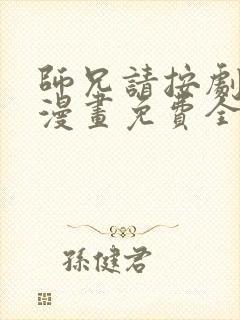 師兄請按劇
漫畫免費全
孫健君